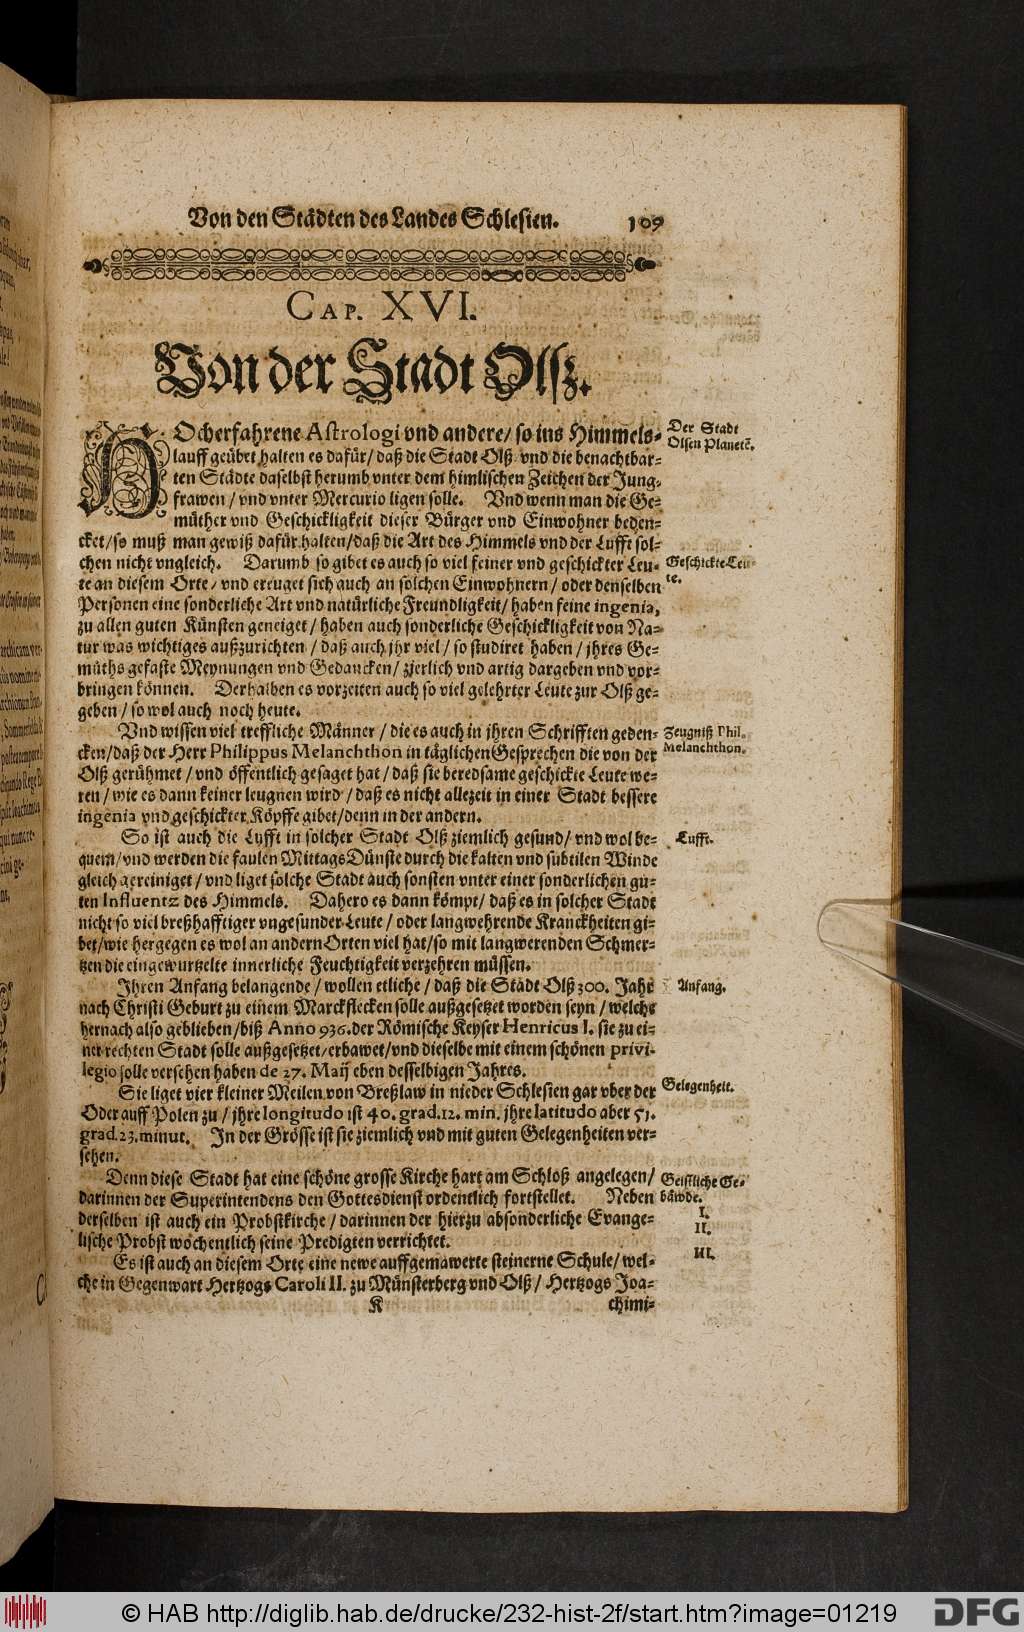 Von den Städten des Landes Schlesien. 109
CAP. XVI.
Von der Stadt Olß.
HOcherfahrene Astrologi vnd andere / so ins Himmels-
lauff geübet halten es dafür / daß die Stadt Olß vnd die benachtbar-
ten Städte daselbst herumb vnter dem himlischen Zeichen der Jung-
frawen / vnd vnter Mercurio ligen solle. Vnd wenn man die Ge-
müther vnd Geschickligkeit dieser Bürger vnd Einwohner beden-
cket / so muß man gewiß dafür halten / daß die Art des Himmels vnd der Lufft sol-
chen nicht vngleich. Darumb so gibet es auch so viel feiner vnd geschickter Leu-
te an diesem Orte / vnd ereuget sich auch an solchen Einwohnern / oder denselben
Personen eine sonderliche Art vnd natürliche Freundligkeit / haben feine ingenia,
zu allen guten Künsten geneiget / haben auch sonderliche Geschickligkeit von Na-
tur was wichtiges außzurichten / daß auch jhr viel / so studiret haben / jhres Ge-
müths gefaste Meynungen vnd Gedancken / zierlich vnd artig dargeben vnd vor-
bringen können. Derhalben es vorzeiten auch so viel gelehrter Leute zur Olß ge-
geben / so wol auch noch heute.
Vnd wissen viel treffliche Männer / die es auch in jhren Schrifften geden-
cken / daß der Herr Philippus Melanchthon in täglichen Gesprechen die von der
Olß gerühmet / vnd öffentlich gesaget hat / daß sie beredsame geschickte Leute we-
ren / wie es dann keiner leugnen wird / daß es nicht allezeit in einer Stadt bessere
ingenia vnd geschickter Köpffe gibet / denn in der andern.
So ist auch die Lufft in solcher Stadt Olß ziemlich gesund / vnd wol be-
quem / vnd werden die faulen Mittags Dünste durch die kalten vnd subtilen Winde
gleich gereiniget / vnd liget solche Stadt auch sonsten vnter einer sonderlichen gu-
ten Influentz des Himmels. Dahero es dann kömpt / daß es in solcher Stadt
nicht so viel breßhafftiger vngesunder Leute / oder langwehrende Kranckheiten gi-
bet / wie hergegen es wol an andern Orten viel hat / so mit langwerenden Schmer-
tzen die eingewurtzelte innerliche Feuchtigkeit verzehren müssen.
Jhren Anfang belangende / wollen etliche / daß die Stadt Olß 300. Jahr
nach Christi Geburt zu einem Marckflecken solle außgesetzet worden seyn / welchs
hernach also geblieben / biß Anno 936. der Römische Keyser Henricus I. sie zu ei-
ner rechten Stadt solle außgesetzet / erbawet / vnd dieselbe mit einem schönen privi-
legio solle versehen haben de 27. Maij eben desselbigen Jahres.
Sie liget vier kleiner Meilen von Breßlaw in nieder Schlesien gar vber der
Oder auff Polen zu / jhre longitudo ist 40. grad. 12. min. jhre latitudo aber 51.
grad. 23. minut. Jn der Grösse ist sie ziemlich vnd mit guten Gelegenheiten ver-
sehen.
Denn diese Stadt hat eine schöne grosse Kirche hart am Schloß angelegen /
darinnen der Superintendens den Gottesdienst ordentlich fortstellet. Neben
derselben ist auch ein Probstkirche / darinnen der hierzu absonderliche Evange-
lische Probst wöchentlich seine Predigten verrichtet.
Es ist auch an diesem Orte eine newe auffgemawerte steinerne Schule / wel-
che in Gegenwart Hertzogs Caroli II. zu Münsterberg vnd Olß / Hertzogs Joa-
K chimi-
Der Stadt
Olsen Planetē.
Geschickte Leu-
te.
Zeugniß Phil.
Melanchthon.
Lufft.
Anfang.
Gelegenheit.
Geistliche Ge-
bäwde.
I.
II.
III.
© HAB http://diglib.hab.de/drucke/232-hist-2f/start.htm?image=01219
DFG